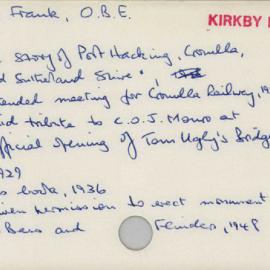 Frank, O.B.E.
KIRKBY
Story of Port Hacking, Cronulla,
Sutherland Shire",
tended meeting for Cronulla Railway, 19
id tribute to C.O.J. Monro at
fficial opening of Tom Ugly's Bridge
929
s book, 1936
iven permission to erect monument
Bass and Flinders, 1948